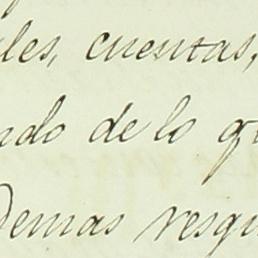 les, cuentas,
ado de lo q
Demas resgu